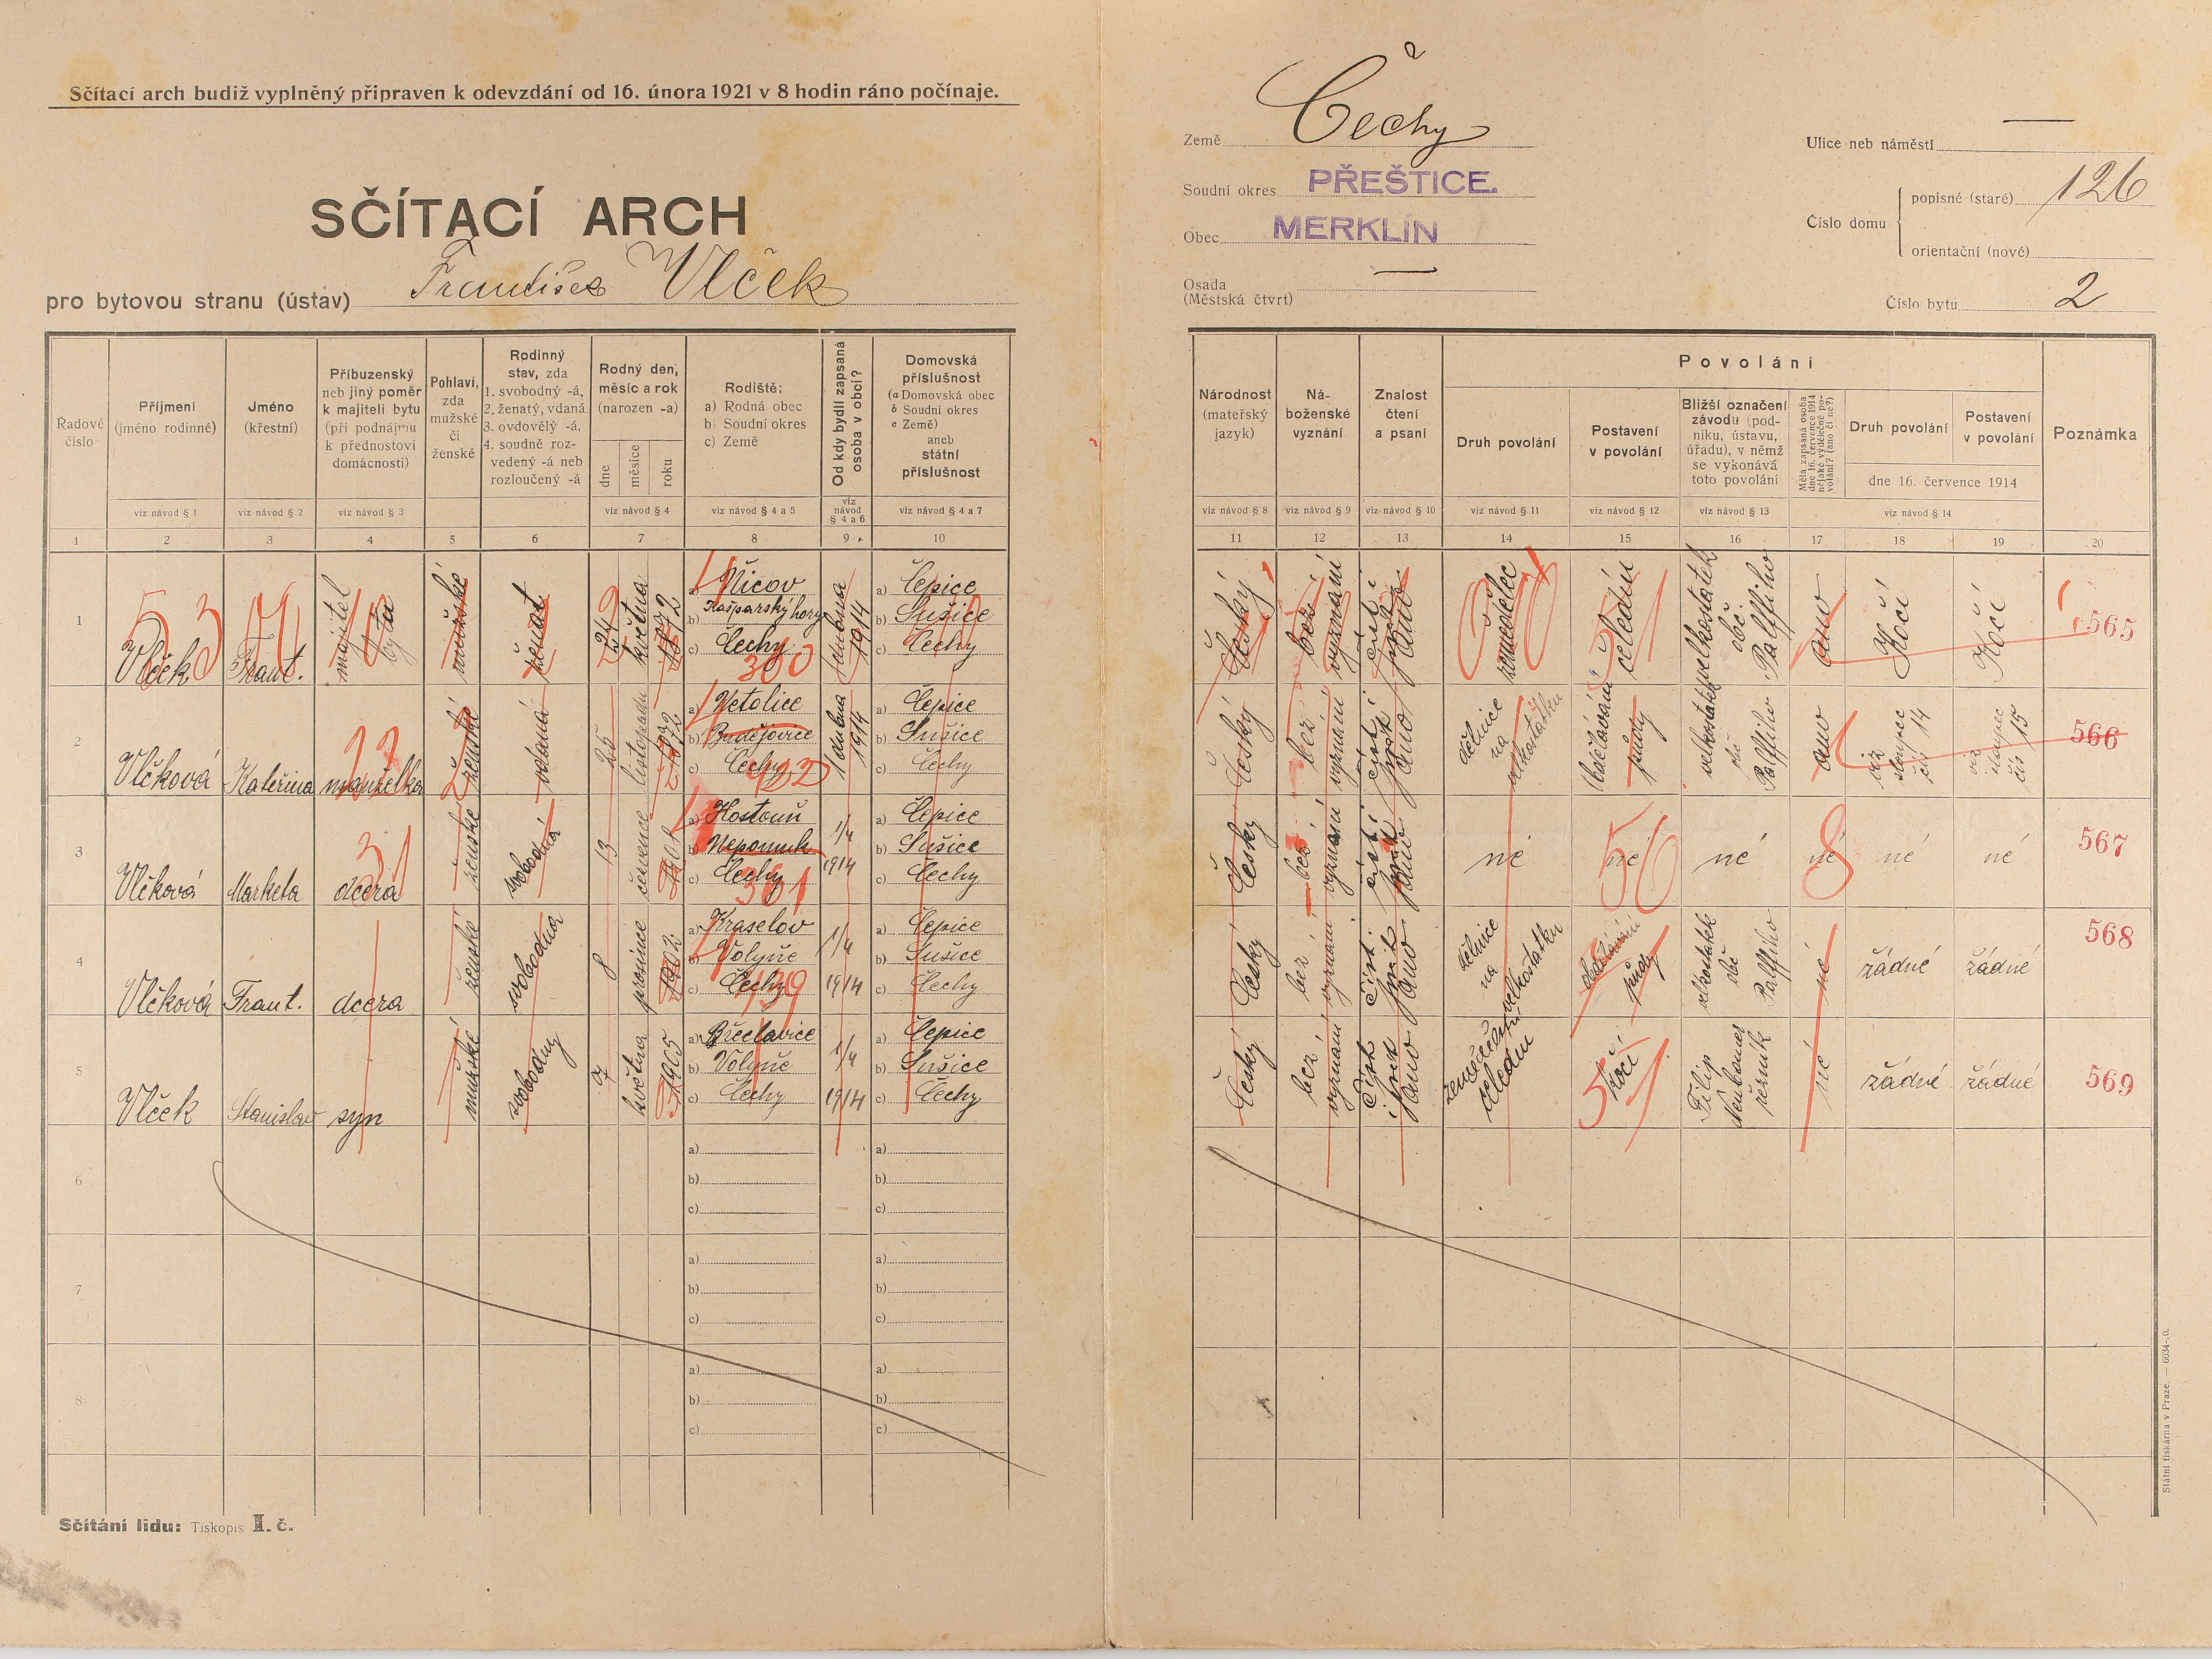 Sčítací arch budiž vyplněný připraven k odevzdání od 16. února 1921 v 8 hodin ráno počínaje.
SČÍTACÍ ARCH
pro bytovou stranu (ústav) František Vlček
Země Čechy
Soudní okres PŘEŠTICE.
Obec MERKLÍN
Osada —
(Městská čtvrť)
Ulice neb náměstí —
Číslo domu
popisné (staré) 126
orientační (nové)
Číslo bytu 2
Řadové číslo
Příjmení (jméno rodinné)
Jméno (křestní)
Příbuzenský neb jiný poměr k majiteli bytu (při podnájmu k přednostovi domácnosti)
Pohlaví, zda mužské či ženské
Rodinný stav, zda 1. svobodný -á, 2. ženatý, vdaná, 3. ovdovělý -á, 4. soudně rozvedený -á neb rozloučený -á
Rodný den, měsíc a rok (narozen -a)
dne měsíce roku
Rodiště: a) Rodná obec b) Soudní okres c) Země
Od kdy bydlí zapsaná osoba v obci?
Domovská příslušnost (a Domovská obec b Soudní okres c Země) aneb státní příslušnost
Národnost (mateřský jazyk)
Náboženské vyznání
Znalost čtení a psaní
Povolání
Druh povolání
Postavení v povolání
Bližší označení závodu (podniku, ústavu, úřadu), v němž se vykonává toto povolání
Měla zapsaná osoba dne 16. července 1914 nějaké výdělečné povolání? (ano či ne?)
Druh povolání
Postavení v povolání
dne 16. července 1914
Poznámka
viz návod § 1 viz návod § 2 viz návod § 3 viz návod § 4 viz návod § 4 a 5 viz návod § 4 a 6 viz návod § 4 a 7
viz návod § 8 viz návod § 9 viz návod § 10 viz návod § 11 viz návod § 12 viz návod § 13 viz návod § 14
1 2 3 4 5 6 7 8 9 10 11 12 13 14 15 16 17 18 19 20
1 Vlček Frant. majitel bytu mužské ženat 24 května 1872
a) Nicov b) Kašparský hory c) Čechy
dubna 1914
a) Čepice b) Sušice c) Čechy
český bez vyznání číst i psát ano zemědělec čeledín velkostatek obč. Palffiho ano Kočí Kočí 565
2 Vlčková Kateřina manželka ženské vdaná 25 listopadu 1872
a) Netolice b) Budějovice c) Čechy
1 dubna 1914
a) Čepice b) Sušice c) Čechy
český bez vyznání číst i psát ano dělnice na velkostatku Obdělávání půdy velkostatek obč. Palffiho ano viz sloupec čís 14 viz sloupec čís 15 566
3 Vlčková Marketa dcera ženské svobodná 13 července 1901
a) Hostouň b) Nepomuk c) Čechy
1/4 1914
a) Čepice b) Sušice c) Čechy
český bez vyznání číst i psát ano né né né né né né 567
4 Vlčková Frant. dcera ženské svobodna 8 prosince 1902
a) Kraselov b) Volyně c) Čechy
1/4 1914
a) Čepice b) Sušice c) Čechy
český bez vyznání číst i psát ano dělnice na velkostatku půdy velkostatek obč Palffiho né žádné žádné 568
5 Vlček Stanislav syn mužské svobodný 7 května 1905
a) b) Volyně c) Čechy
1/4 1914
a) Čepice b) Sušice c) Čechy
český bez vyznání číst i psát ano zemědělský čeledín kočí Filip řezník né žádné žádné 569
6 a) b) c) a) b) c)
7 a) b) c) a) b) c)
8 a) b) c) a) b) c)
Sčítání lidu: Tiskopis I. č.
Státní tiskárna v Praze. — 6034-.0.